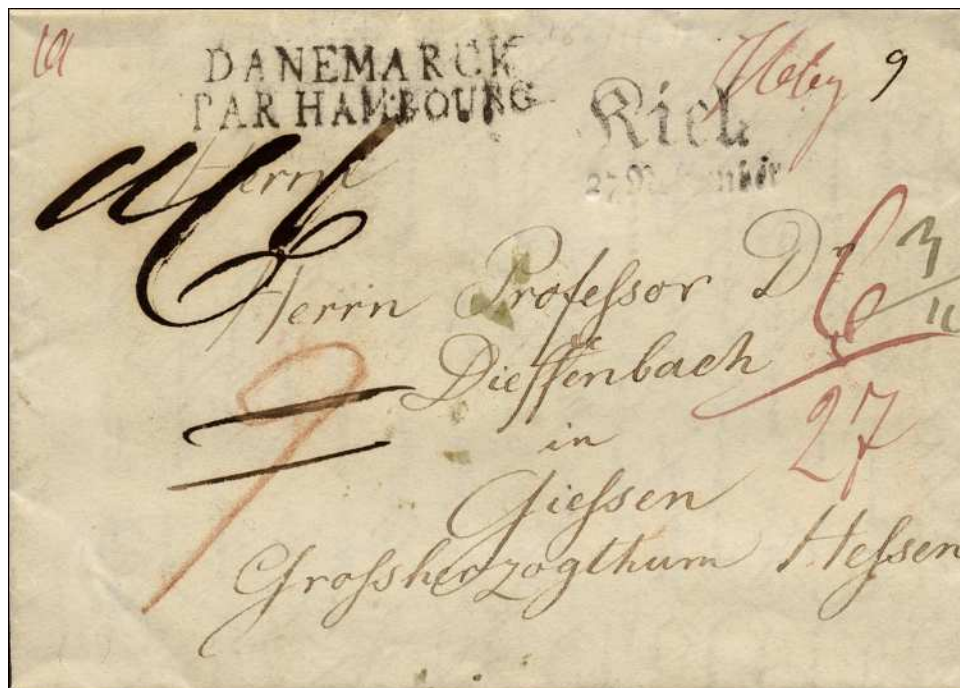 DANEMARCK
PAR HAMBOURG
9
Kiel
Herrn
Herrn Professor Dr
Dieffenbach
in
Giessen
Grossherzogthum Hessen
9
27